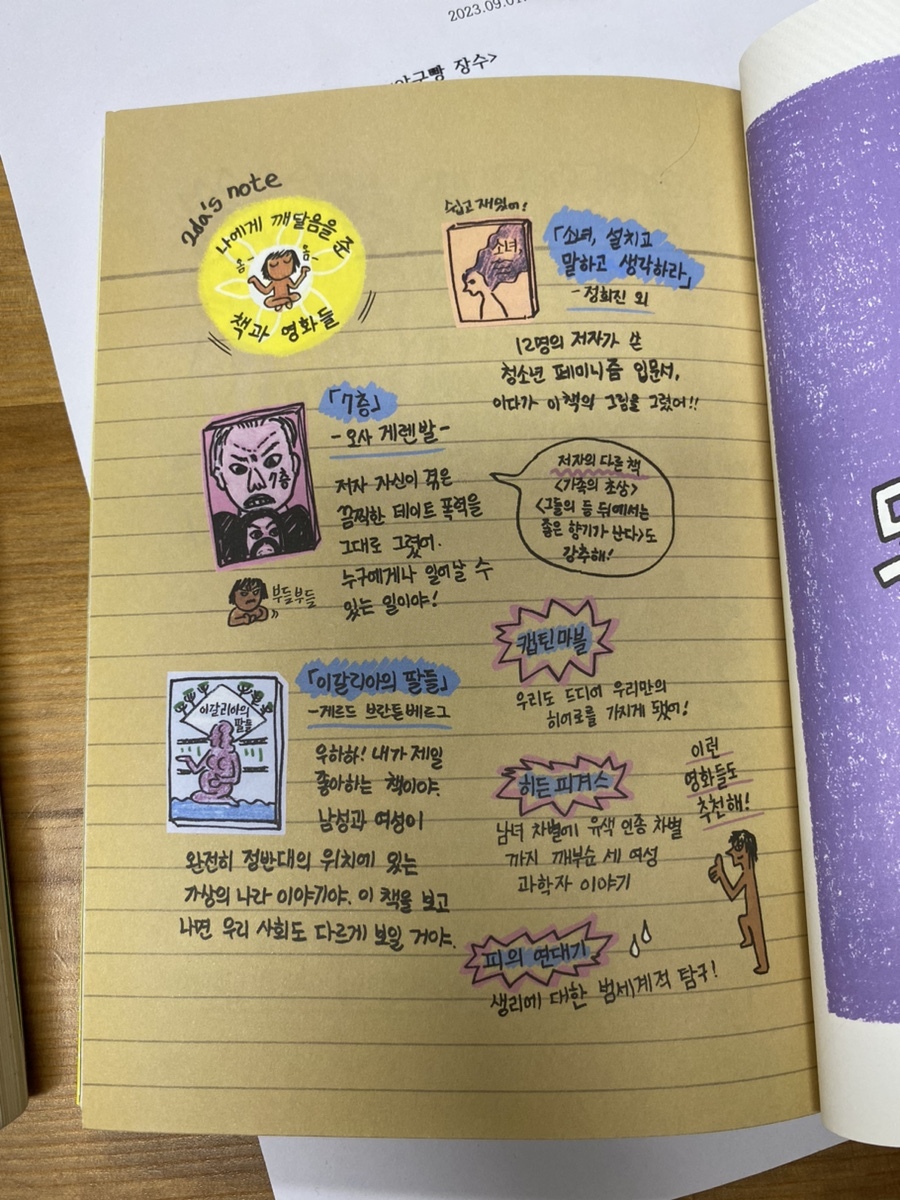 2023.09.01.
장수>
2da's note
나에게 깨달음을 준
옴- 옴-
책과 영화들
「7층」
- 오사 게렌발 -
7층
저자 자신이 겪은
끔찍한 데이트 폭력을
그대로 그렸어.
누구에게나 일어날 수
있는 일이야!
부들부들
「이갈리아의 딸들」
- 게르드 브란튼베르그
이갈리아의
딸들
우하하! 내가 제일
좋아하는 책이야.
남성과 여성이
완전히 정반대의 위치에 있는
가상의 나라 이야기야. 이 책을 보고
나면 우리 사회도 다르게 보일 거야.
쉽고 재밌어!
소녀,
「소녀, 설치고
말하고 생각하라」
- 정희진 외
12명의 저자가 쓴
청소년 페미니즘 입문서.
이다가 이 책의 그림을 그렸어!!
저자의 다른 책
<가족의 초상>
<그들의 등 뒤에서는
좋은 향기가 난다>도
강추해!
캡틴 마블
우리도 드디어 우리만의
히어로를 가지게 됐어!
히든 피겨스
남녀 차별에 유색 인종 차별
까지 깨부순 세 여성
과학자 이야기
이런
영화들도
추천해!
피의 연대기
생리에 대한 범세계적 탐구!